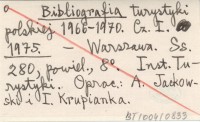 Bibliografia turystyki
polskiej 1966-1970. Cz. I.
1975. — Warszawa. Ss.
280, powiel., 8°. Inst. Tu-
rystyki. Oprac.: A. Jackow-
ski i I. Krupianka.
BT100410833